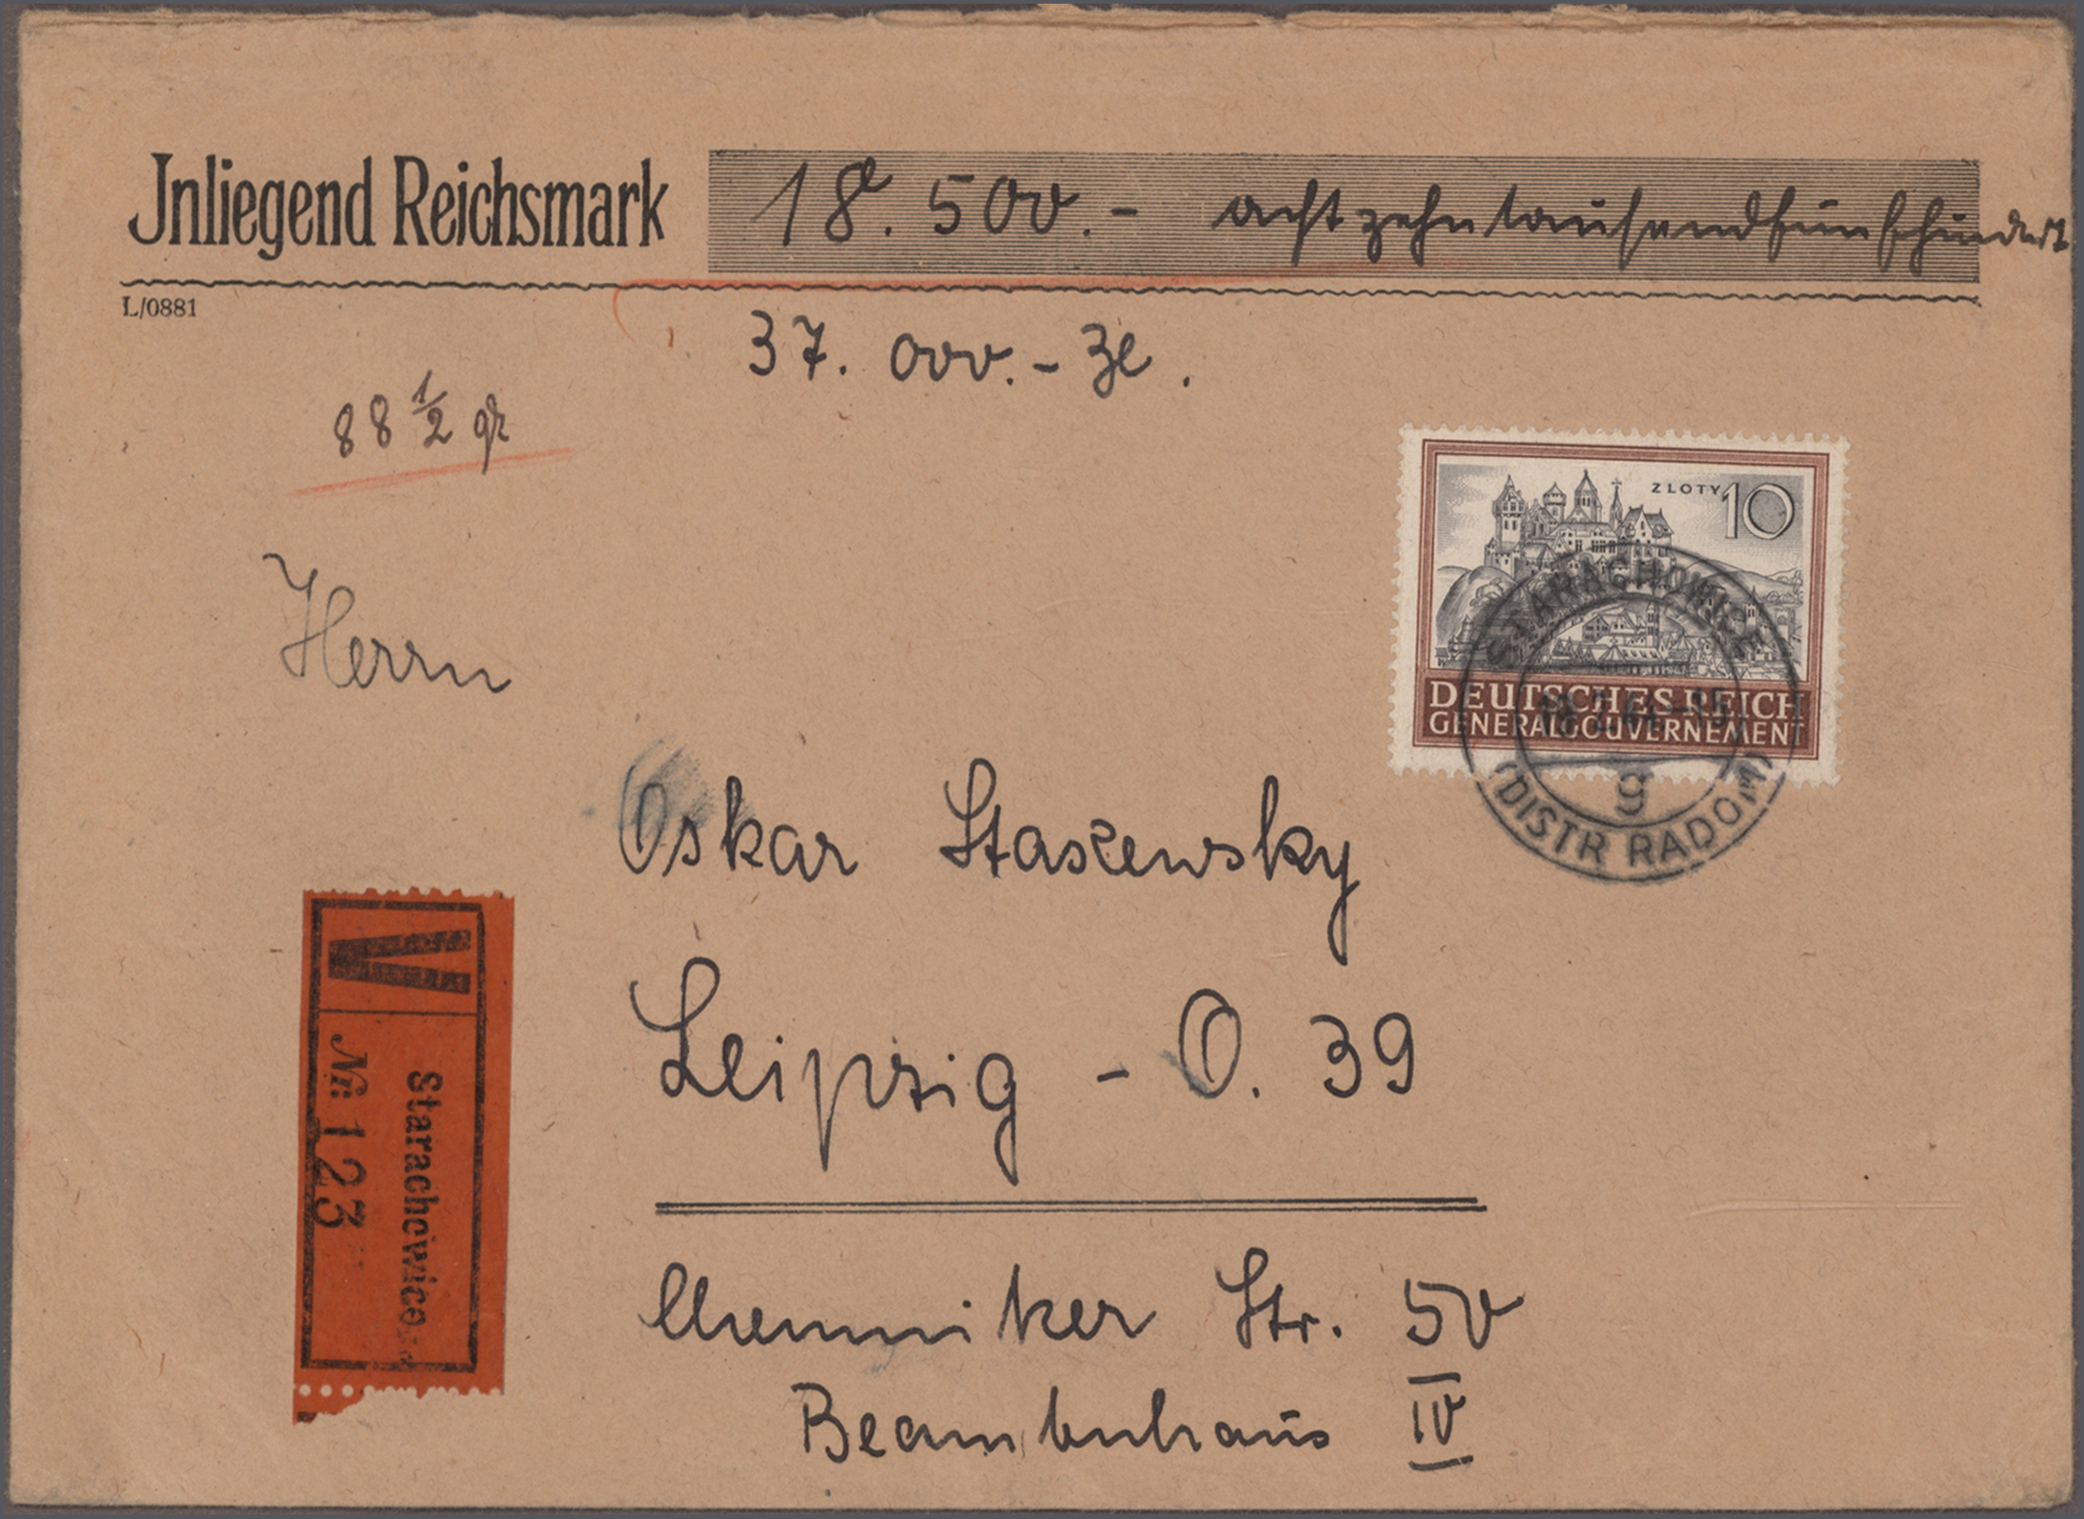 Jnliegend Reichsmark 18.500.- achtzehntausendfünfhundert
L/0881
37.000.- Zl.
88 1/2 gr
ZLOTY 10
DEUTSCHES REICH
GENERALGOUVERNEMENT
STARACHOWICE
g
(DISTR RADOM)
Herrn
Oskar Staszewsky
Leipzig - O. 39
Chemnitzer Str. 50
Beamtenhaus IV
V
Starachowice
Nr. 123